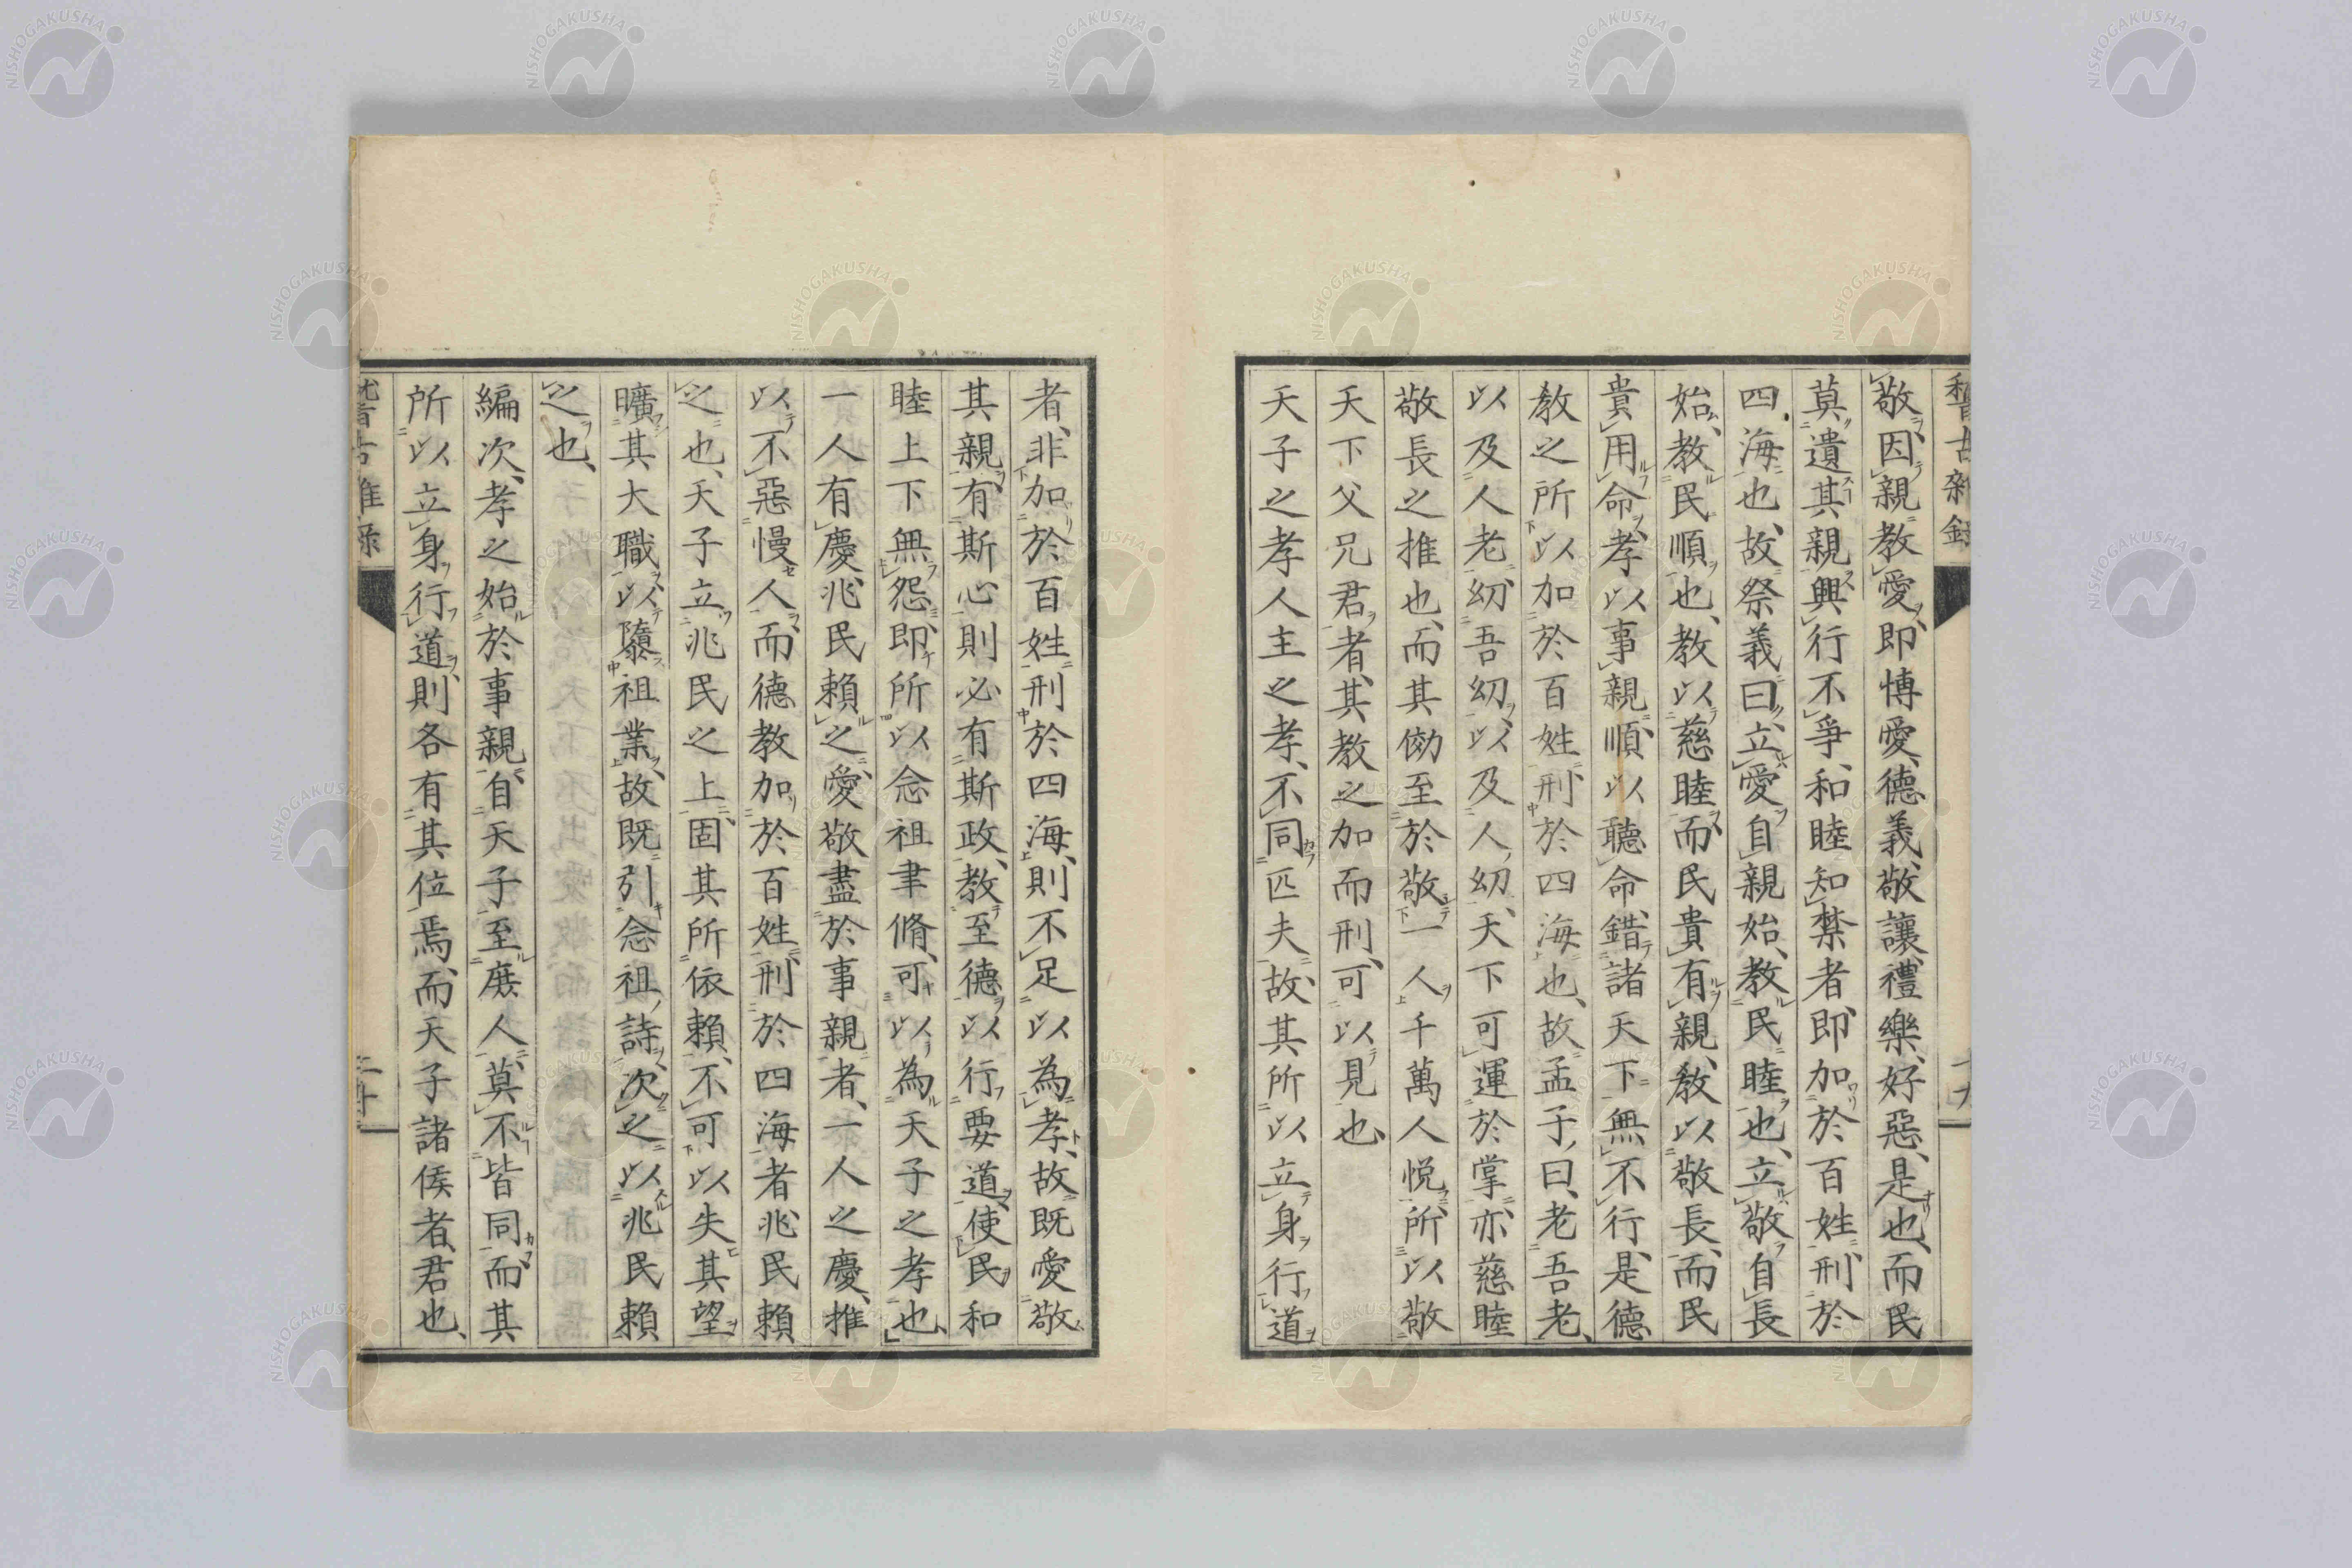 稽古雜錄
敬因親教愛、即博愛、德義、敬讓、禮樂、好惡、是也、而民
莫遺其親興行不爭、和睦知禁者、即加於百姓刑於
四海也、故祭義曰、立愛自親始、教民睦也、立敬自長
始、教民順也、教以慈睦而民貴有親、教以敬長、而民
貴用命、孝以事親、順以聽命、錯諸天下、無不行、是德
教之所以加於百姓刑於四海也、故孟子曰、老吾老、
以及人老、幼吾幼、以及人幼、天下可運於掌、亦慈睦
敬長之推也、而其効至於敬一人千萬人悅、所以敬
天下父兄君者、其教之加而刑、可以見也、
天子之孝人主之孝、不同匹夫、故其所以立身行道
者、非加於百姓刑於四海、則不足以為孝、故既愛敬
其親、有斯心則必有斯政、教至德以行要道、使民和
睦上下無怨、即所以念祖聿脩、可以為天子之孝也、
一人有慶、兆民賴之、愛敬盡於事親者、一人之慶、推
以不惡慢人、而德教加於百姓、刑於四海者、兆民賴
之也、天子立兆民之上、固其所依賴、不可以失其望
曠其大職以隳祖業、故既引念祖詩、次之以兆民賴
之也、
編次、孝之始於事親、自天子至庶人、莫不皆同、而其
所以立身行道、則各有其位焉、而天子諸侯者、君也、
稽古雜錄